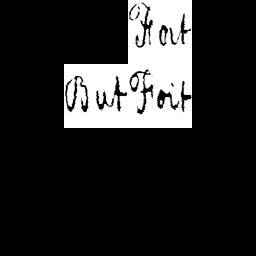 Hort
But Foit